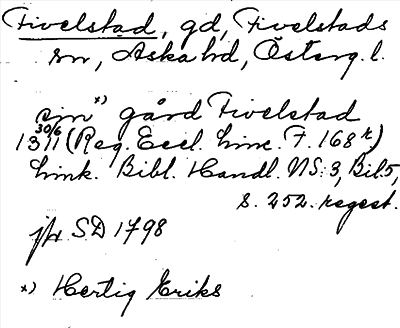 Fivelstad, gd, Fivelstads
sn, Aska hd, Österg. l.
sin *) gård Fivelstad
13 30/6 11 (Reg. Eccl. Linc. F. 168 r)
Link. Bibl. Handl. NS: 3, Bil. 5,
s. 252. regest.
jfr SD 1798
*) Hertig Eriks